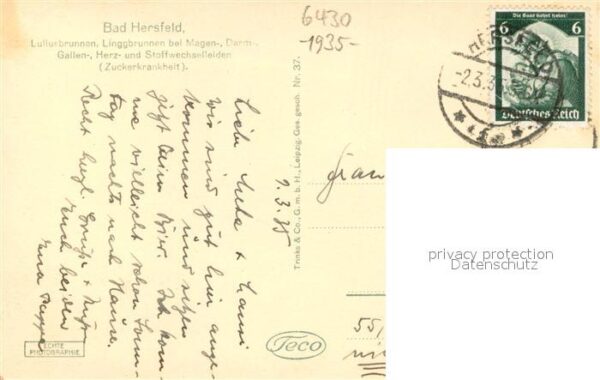 Bad Hersfeld,
Lullusbrunnen, Linggbrunnen bei Magen-, Darm-,
Gallen-, Herz- und Stoffwechselleiden
(Zuckerkrankheit).
6430
-1935-
Die Saar kehrt heim!
6 6
Deutsches Reich
HERSFELD
-2.3.35
Liebe + Hanni
wir sind gut hier ange-
kommen und sitzen
jetzt beim Bier. Ich kom-
me vielleicht schon Sonn-
tag nachts nach Hause.
Recht herzl. Grüße + Küsse
Euch beiden
1.3.35
Trinks & Co., G.m.b.H., Leipzig. Ges. gesch. Nr. 37.
privacy protection
Datenschutz
55,
ECHTE
PHOTOGRAPHIE
Teco